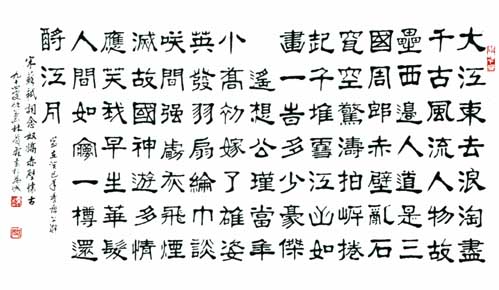 大江東去浪淘盡
千古風流人物故
壘西邊人道是三
國周郎赤壁亂石
穿空驚濤拍岸捲
起千堆雪江山如
畫一旹多少豪傑
遙想公瑾當年
小喬初嫁了雄姿
英發羽扇綸巾談
咲間強虜灰飛煙
滅故國神遊多情
應笑我早生華髮
人間如夢一樽還
酹江月
宋蘇軾詞念奴嬌赤壁懷古